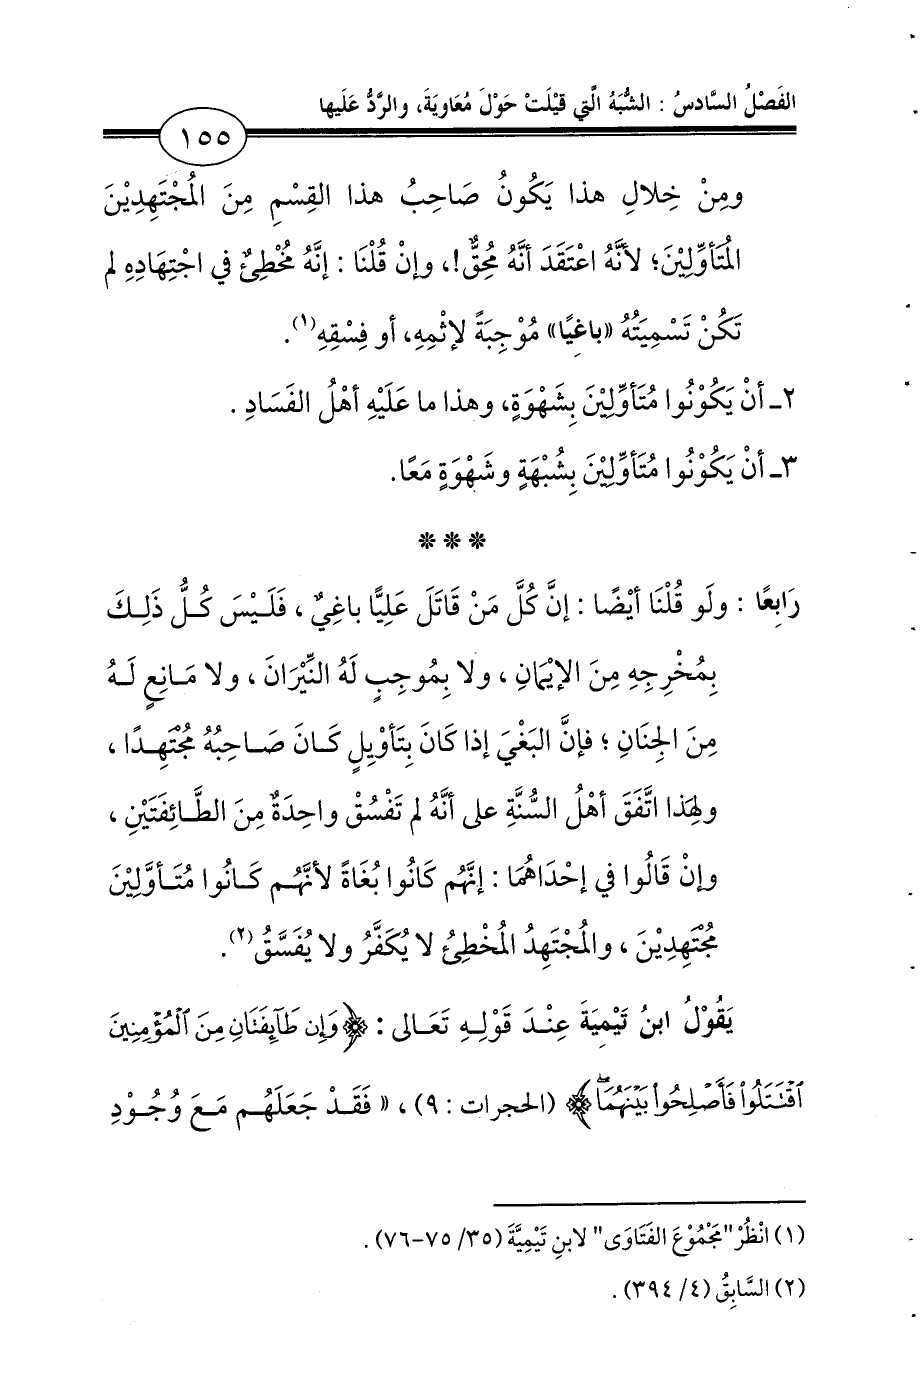 الفَصْلُ السَّادسُ : الشُّبَهُ الَّتي قيْلَتْ حَوْلَ مُعَاويَةَ، والرَّدُّ عَلَيها
١٥٥
ومِنْ خِلالِ هذا يَكُونُ صَاحِبُ هذا القِسْمِ مِنَ المُجْتَهِدِيْنَ
المُتَأوِّلِيْنَ؛ لأنَّهُ اعْتَقَدَ أنَّهُ مُحِقٌّ!، وإنْ قُلْنَا : إنَّهُ مُخْطِئٌ في اجْتِهَادِهِ لم
تَكُنْ تَسْمِيَتُهُ «باغِيًا» مُوْجِبَةً لإثْمِهِ، أو فِسْقِهِ(١).
٢ـ أنْ يَكُوْنُوا مُتَأوِّلِيْنَ بِشَهْوَةٍ، وهذا ما عَلَيْهِ أهْلُ الفَسَادِ .
٣ـ أنْ يَكُوْنُوا مُتَأوِّلِيْنَ بِشُبْهَةٍ وشَهْوَةٍ مَعًا.
* * *
رَابِعًا : ولَو قُلْنَا أيْضًا : إنَّ كُلَّ مَنْ قَاتَلَ عَلِيًّا باغِيٌ ، فَلَيْسَ كُلُّ ذَلِكَ
بِمُخْرِجِهِ مِنَ الإيْمَانِ ، ولا بِمُوجِبٍ لَهُ النِّيْرَانَ ، ولا مَانِعٍ لَهُ
مِنَ الجِنَانِ ؛ فإنَّ البَغْيَ إذا كَانَ بِتَأوْيِلٍ كَانَ صَاحِبُهُ مُجْتَهِدًا ،
ولهِذا اتَّفَقَ أهْلُ السُّنَّةِ على أنَّهُ لم تَفْسُقْ واحِدَةٌ مِنَ الطَّائِفَتَيْنِ ،
وإنْ قَالُوا في إحْدَاهُمَا : إنَّهُم كَانُوا بُغَاةً لأنَّهُم كَانُوا مُتَأوَّلِيْنَ
مُجْتَهِدِيْنَ ، والمُجْتَهِدُ المُخْطِئُ لا يُكَفَّرُ ولا يُفَسَّقُ(٢).
يَقُوْلُ ابنُ تَيْمِيَةَ عِنْدَ قَوْلِهِ تَعَالى : ﴿وَإِن طَآئِفَتَانِ مِنَ ٱلْمُؤْمِنِينَ
ٱقْتَتَلُوا۟ فَأَصْلِحُوا۟ بَيْنَهُمَا ۖ﴾ (الحجرات : ٩) ، « فَقَدْ جَعَلَهُم مَعَ وُجُوْدِ
(١) انْظُرْ "مَجْمُوْعَ الفَتَاوَى" لابنِ تَيْمِيَّةَ (٣٥/ ٧٥-٧٦) .
(٢) السَّابِقُ (٤/ ٣٩٤) .